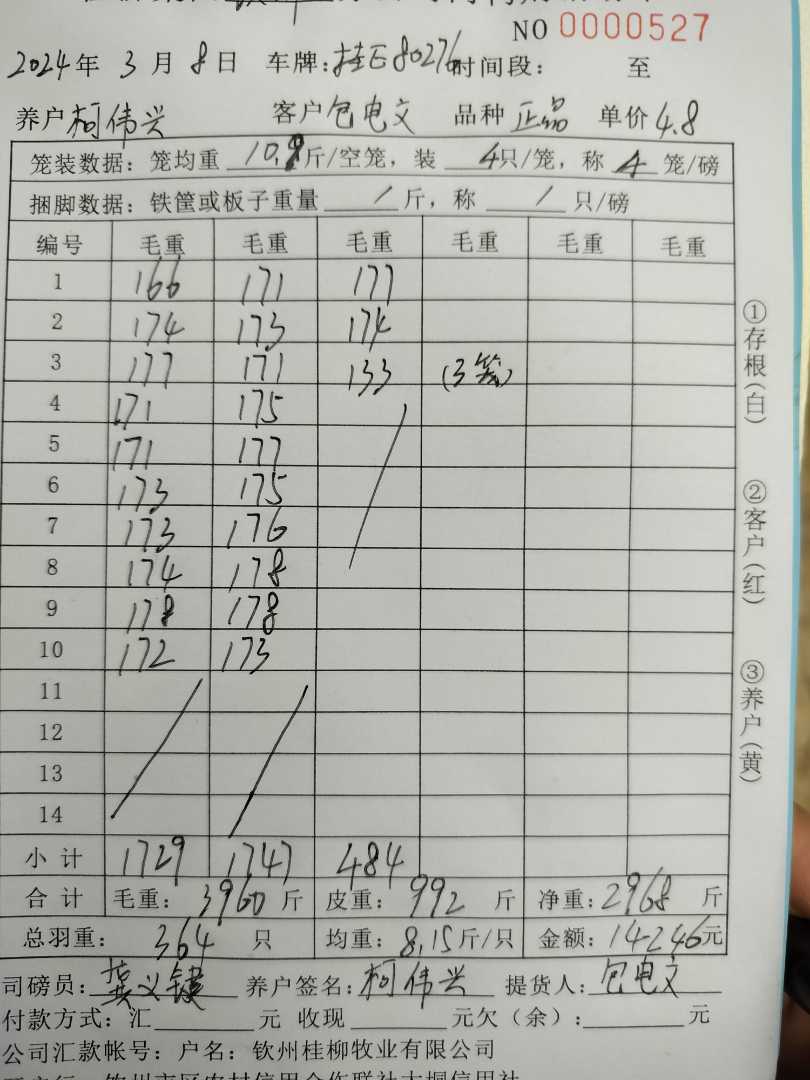 NO 0000527
2024年 3月 8日 车牌:桂E80276 时间段: 至
养户 柯伟兴 客户 包电文 品种 正品 单价 4.8
笼装数据: 笼均重 10.9 斤/空笼, 装 4只/笼, 称 4 笼/磅
捆脚数据: 铁筐或板子重量 / 斤, 称 / 只/磅
编号 毛重 毛重 毛重 毛重 毛重 毛重
1 166 171 177
2 174 173 174
3 177 171 133 (3笼)
4 171 175
5 171 177
6 173 175
7 173 176
8 174 178
9 178 178
10 172 173
11
12
13
14
小计 1729 1747 484
合计 毛重: 3960 斤 皮重: 992 斤 净重: 2968 斤
总羽重: 364 只 均重: 8.15斤/只 金额: 14246元
司磅员: 龚义键 养户签名: 柯伟兴 提货人: 包电文
付款方式: 汇 元 收现 元欠(余): 元
公司汇款帐号: 户名: 钦州桂柳牧业有限公司
①存根(白) ②客户(红) ③养户(黄)